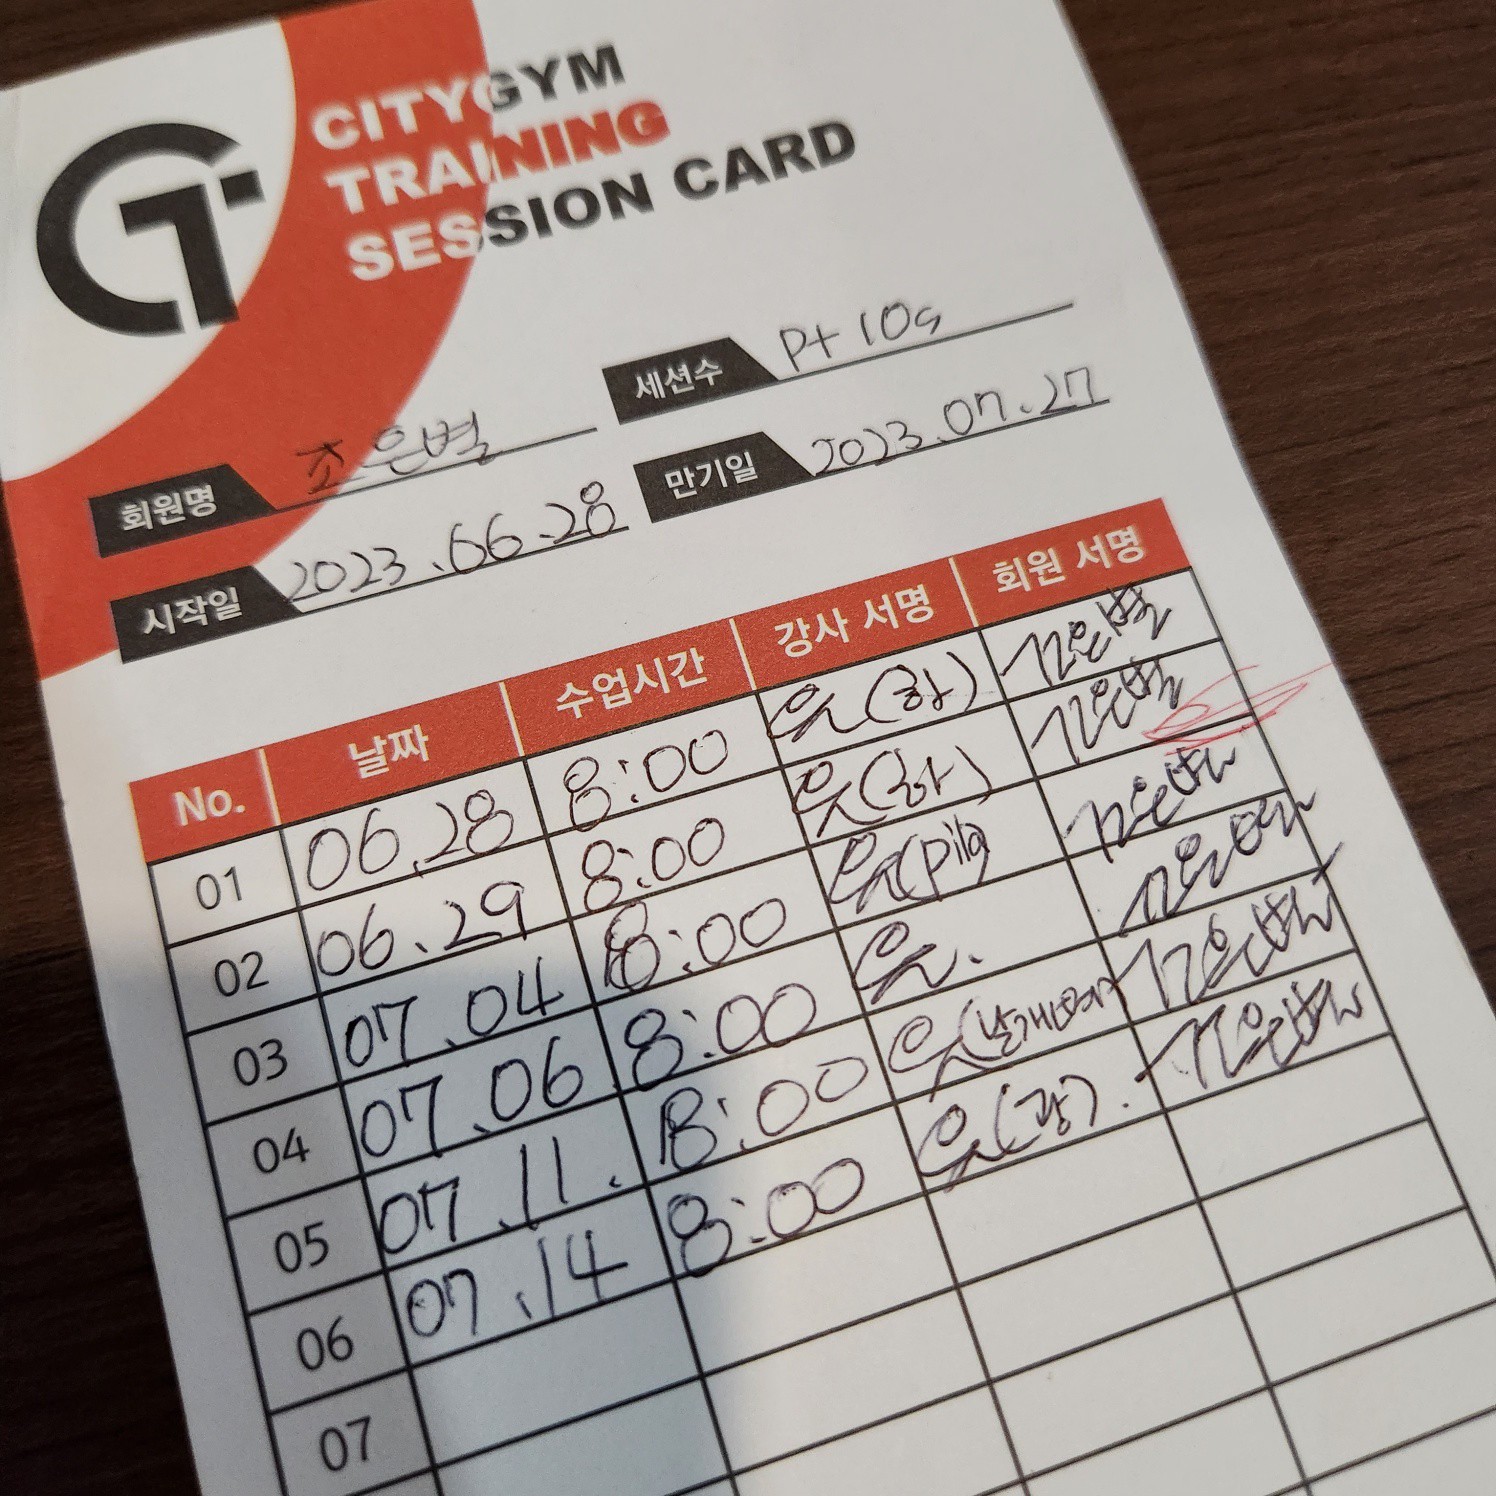 CITYGYM
TRAINING
SESSION CARD
세션수 Pt 10
회원명 조은별
만기일 2023.07.27
시작일 2023.06.28
No. 날짜 수업시간 강사 서명 회원 서명
01 06.28 8:00
02 06.29 8:00
03 07.04 8:00
04 07.06 8:00
05 07.11. 8:00
06 07.14 8:00
07